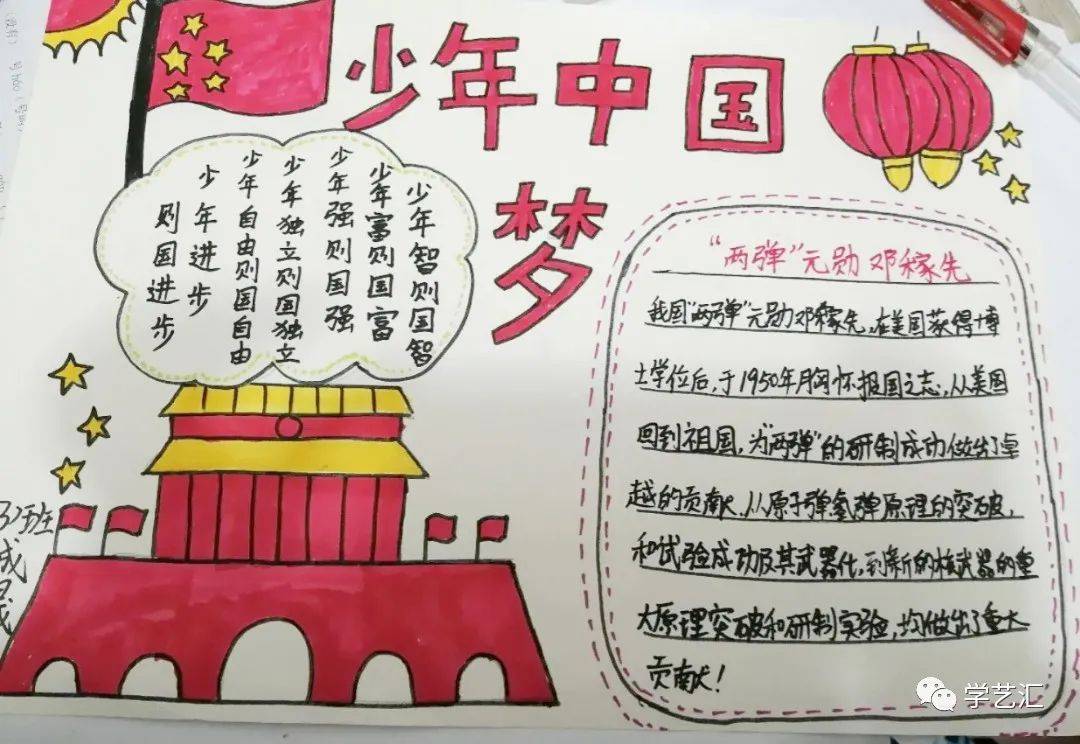 少年中国
梦
少年智则国智
少年富则国富
少年强则国强
少年独立则国独立
少年自由则国自由
少年进步
则国进步
“两弹”元勋 邓稼先
我国“两弹”元勋邓稼先,在美国获得博
士学位后,于1950年月胸怀报国之志,从美国
回到祖国,为“两弹”的研制成功做出了卓
越的贡献,从原子弹氢弹原理的突破,
和试验成功及其武器化,到新的核武器的重
大原理突破和研制实验,均做出了重大
贡献!
班
学艺汇